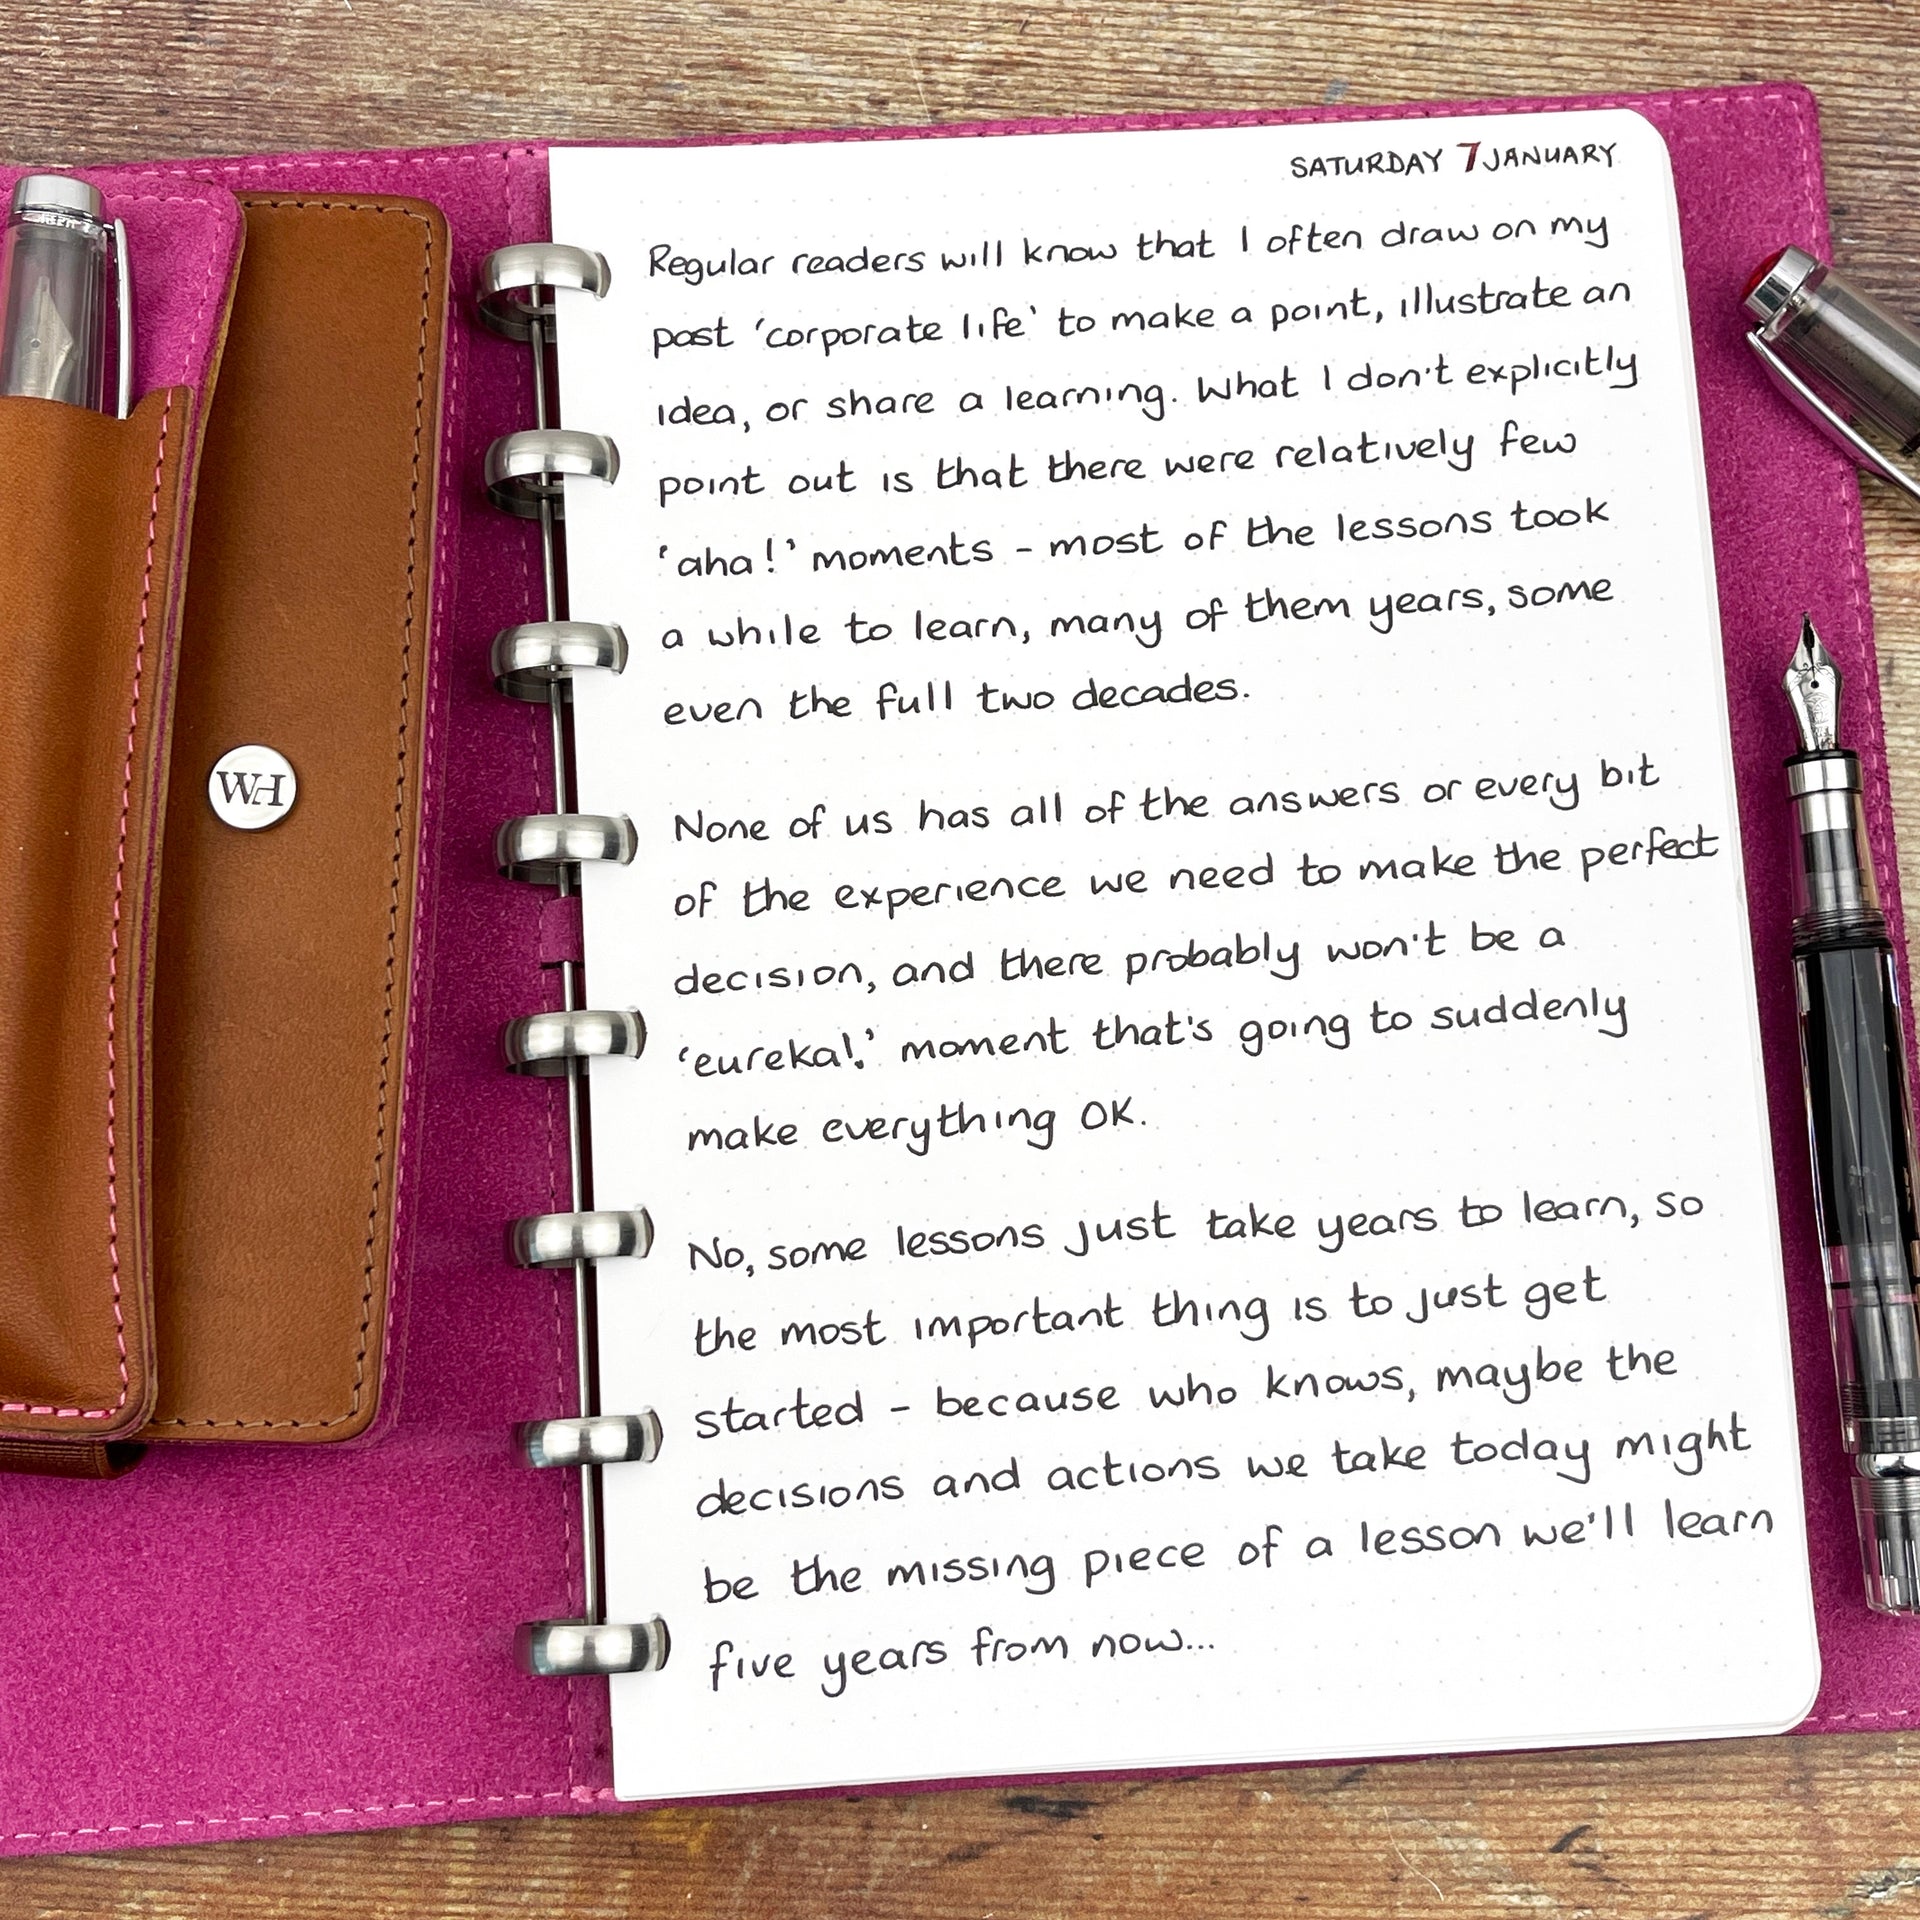 SATURDAY 7 JANUARY
Regular readers will know that I often draw on my
past 'corporate life' to make a point, illustrate an
idea, or share a learning. What I don't explicitly
point out is that there were relatively few
'aha!' moments - most of the lessons took
a while to learn, many of them years, some
even the full two decades.
None of us has all of the answers or every bit
of the experience we need to make the perfect
decision, and there probably won't be a
'eureka!' moment that's going to suddenly
make everything OK.
No, some lessons just take years to learn, so
the most important thing is to just get
started - because who knows, maybe the
decisions and actions we take today might
be the missing piece of a lesson we'll learn
five years from now...
WH